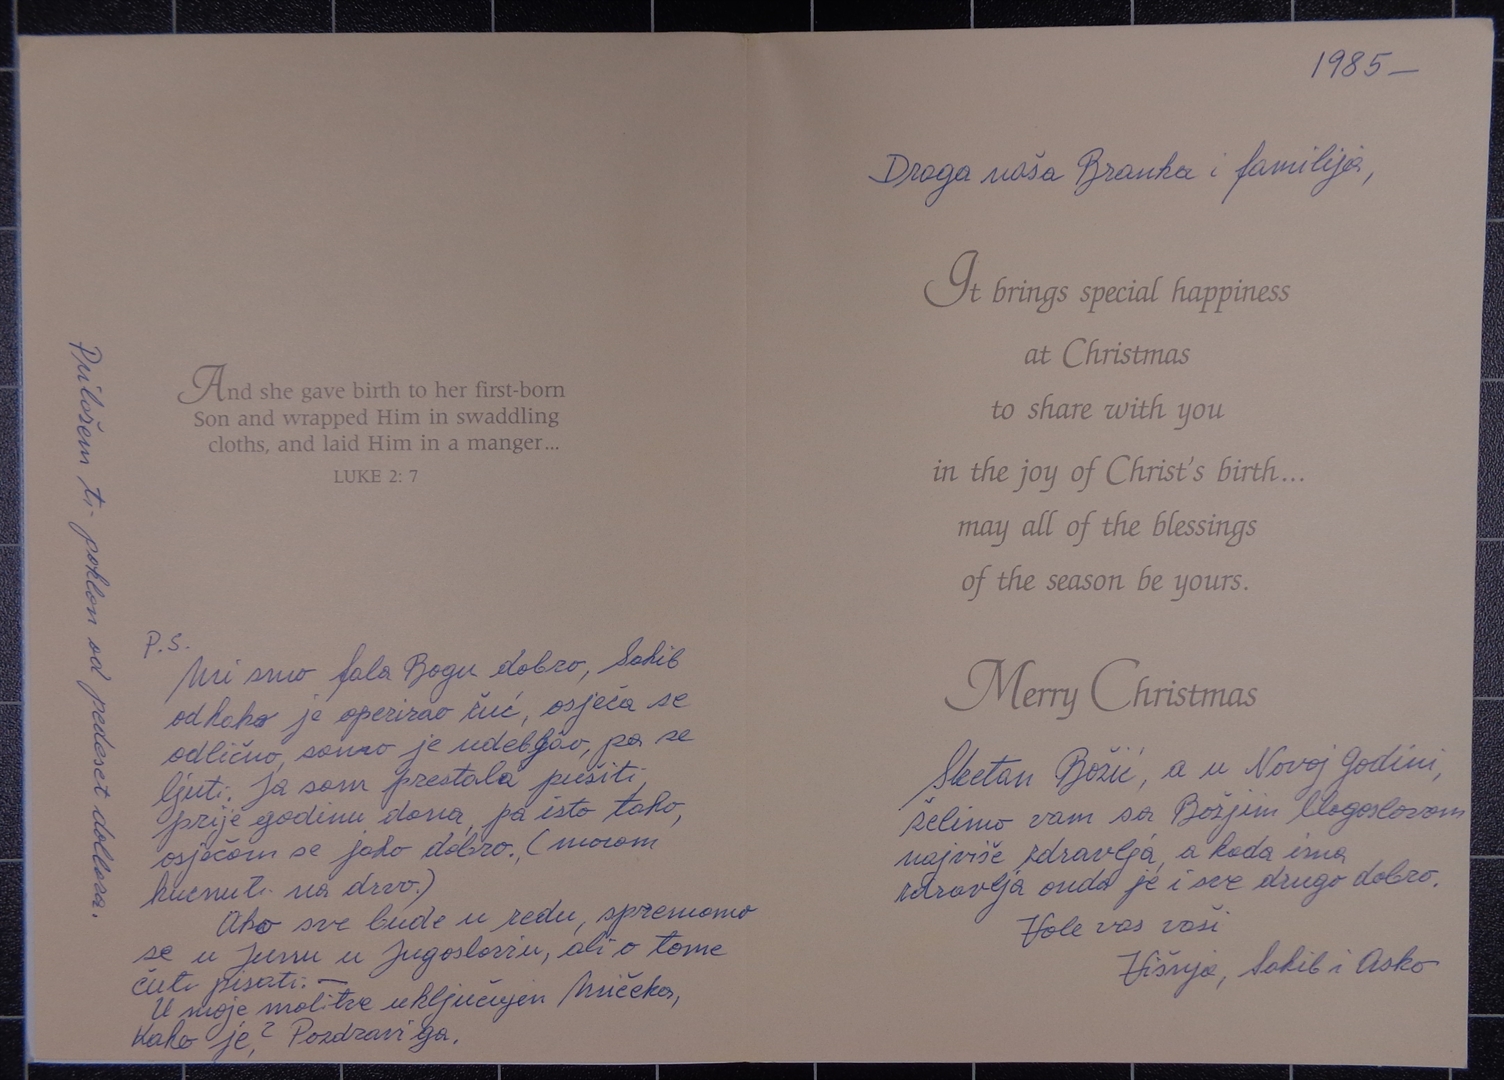 Prilažem ti poklon od pedeset dollara.
And she gave birth to her first-born
Son and wrapped Him in swaddling
cloths, and laid Him in a manger...
LUKE 2: 7
P.S.
Mi smo fala Bogu dobro, Sakib
odkako je operirao žuć, osjeća se
odlično, samo je udebljao, pa se
ljuti. Ja sam prestala pušiti
prije godinu dana, pa isto tako,
osjećam se jako dobro. (moram
kucnuti na drvo.)
Ako sve bude u redu, spremamo
se u Junu u Jugoslaviu, ali o tome
ću ti pisati. —
U moje molitve uključujen Mičeka,
Kako je? Pozdravi ga.
1985—
Draga naša Branka i familija,
It brings special happiness
at Christmas
to share with you
in the joy of Christ's birth...
may all of the blessings
of the season be yours.
Merry Christmas
Sretan Božić, a u Novoj Godini,
želimo vam sa Božjim blagoslovom
najviše zdravlja, a kada ima
zdravlja onda je i sve drugo dobro.
Vole vas vaši
Višnja, Sakib i Asko